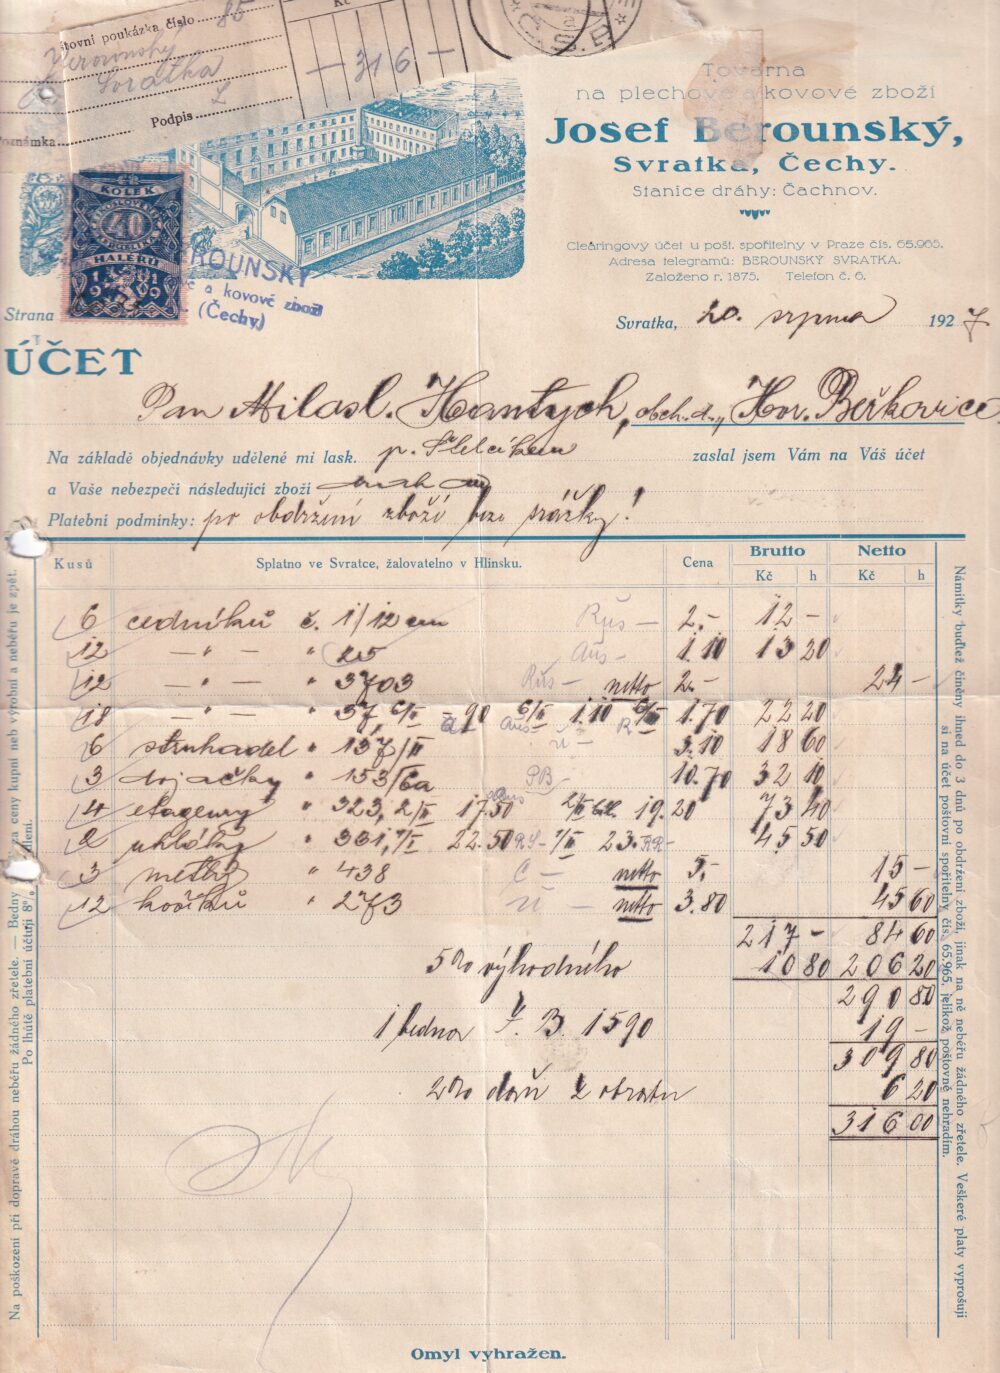 Poštovní poukázka číslo 85
Berounský
Svratka
Podpis
Poznámka
Kč
— 316 —
Továrna
na plechové a kovové zboží
Josef Berounský,
Svratka, Čechy.
Stanice dráhy: Čachnov.
Clearingový účet u pošt. spořitelny v Praze čís. 65.965.
Adresa telegramů: BEROUNSKÝ SVRATKA.
Založeno r. 1875. Telefon č. 6.
KOLEK
40
HALÉŘŮ
1919
BEROUNSKÝ
a kovové zboží
(Čechy)
Strana
Svratka, 20. srpna 1927
ÚČET
Pan Milosl. Hantych, obch. d., Hor. Beřkovice
Na základě objednávky udělené mi lask. p. zaslal jsem Vám na Váš účet
a Vaše nebezpečí následující zboží
Platební podmínky: po obdržení zboží beze srážky!
Kusů Splatno ve Svratce, žalovatelno v Hlinsku. Cena Brutto Netto
Kč h Kč h
6 cedníků č. 1/12 cm 2.- 12 -
12 — " — " 25 1.10 13 20
12 — " — " 3703 netto 2.- 24 -
18 — " — " 37, 6/I -.90 6/II 1.10 6/III 1.70 22 20
6 struhadel " 137/II 3.10 18 60
3 dojačky " 153/6a 10.70 32 10
4 etagery " 323, 2/II 17.50 19.20 73 40
2 uhláky " 361, 7/I 22.50 7/II 23.- 45 50
3 " 438 C — netto 5.- 15 -
12 košíků " 273 netto 3.80 45 60
217 - 84 60
5% výhodního 10 80 206 20
290 80
1 bedna J. B. 1590 19 -
309 80
2% daň z obratu 6 20
316 00
Omyl vyhražen.
Na poškození při dopravě dráhou neberu žádného zřetele. — Bedny za ceny kupní neb výrobní a neběru je zpět.
Po lhůtě platební účtuji 8%
Námitky buďtež činěny ihned do 3 dnů po obdržení zboží, jinak na ně neběřu žádného zřetele. Veškeré platy vyprošuji
si na účet poštovní spořitelny čís. 65.965, jelikož poštovné nehradím.